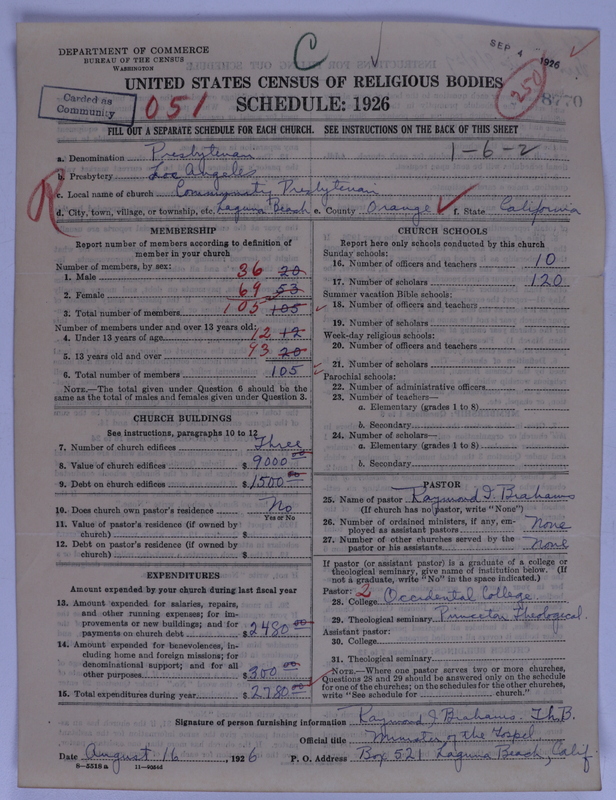 DEPARTMENT OF COMMERCE
BUREAU OF THE CENSUS
WASHINGTON
C
SEP 4 1926
250
8770
UNITED STATES CENSUS OF RELIGIOUS BODIES
SCHEDULE: 1926
Carded as
Community
051
FILL OUT A SEPARATE SCHEDULE FOR EACH CHURCH. SEE INSTRUCTIONS ON THE BACK OF THIS SHEET
a. Denomination Presbyterian 1-6-2
b. Presbytery Los Angeles
c. Local name of church Community Presbyterian
R
d. City, town, village, or township, etc. Laguna Beach e. County Orange f. State California
MEMBERSHIP
Report number of members according to definition of
member in your church
Number of members, by sex:
1. Male 36 20
2. Female 69 53
3. Total number of members 105 105
Number of members under and over 13 years old:
4. Under 13 years of age 12 12
5. 13 years old and over 93 20
6. Total number of members 105
NOTE.—The total given under Question 6 should be the
same as the total of males and females given under Question 3.
CHURCH BUILDINGS
See instructions, paragraphs 10 to 12
7. Number of church edifices Three
8. Value of church edifices $ 9000.00
9. Debt on church edifices $ 1500.00
10. Does church own pastor's residence No
Yes or No
11. Value of pastor's residence (if owned by
church) $
12. Debt on pastor's residence (if owned by
church) $
EXPENDITURES
Amount expended by your church during last fiscal year
13. Amount expended for salaries, repairs,
and other running expenses; for im-
provements or new buildings; and for
payments on church debt $ 2480.00
14. Amount expended for benevolences, in-
cluding home and foreign missions; for
denominational support; and for all
other purposes $ 300.00
15. Total expenditures during year $ 2780.00
CHURCH SCHOOLS
Report here only schools conducted by this church
Sunday schools:
16. Number of officers and teachers 10
17. Number of scholars 120
Summer vacation Bible schools:
18. Number of officers and teachers
19. Number of scholars
Week-day religious schools:
20. Number of officers and teachers
21. Number of scholars
Parochial schools:
22. Number of administrative officers
23. Number of teachers—
a. Elementary (grades 1 to 8)
b. Secondary
24. Number of scholars—
a. Elementary (grades 1 to 8)
b. Secondary
PASTOR
25. Name of pastor Raymond I. Brahams
(If church has no pastor, write "None")
26. Number of ordained ministers, if any, em-
ployed as assistant pastors None
27. Number of other churches served by the
pastor or his assistants None
If pastor (or assistant pastor) is a graduate of a college or
theological seminary, give name of institution below. (If
not a graduate, write "No" in the space indicated.)
Pastor: 2
28. College Occidental College
29. Theological seminary Princeton Theological
Assistant pastor:
30. College
31. Theological seminary
NOTE.—Where one pastor serves two or more churches,
Questions 28 and 29 should be answered only on the schedule
for one of the churches; on the schedules for the other churches,
write "See schedule for church."
Signature of person furnishing information Raymond I Brahams. Th.B.
Official title Minister of the Gospel
Date August 16, 1926 P. O. Address Box 521 Laguna Beach, Calif
8—5518a 11—9054d